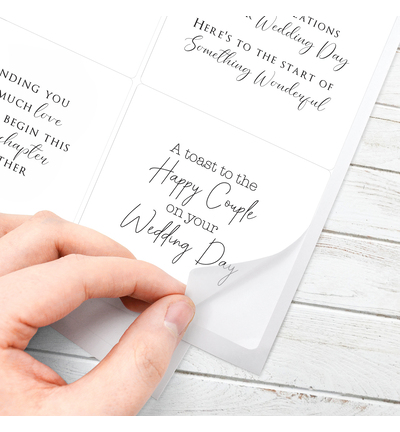 Wedding Day
HERE'S TO THE START OF
Something Wonderful
NDING YOU
MUCH love
BEGIN THIS
chapter
THER
A toast to the
Happy Couple
on your
Wedding Day